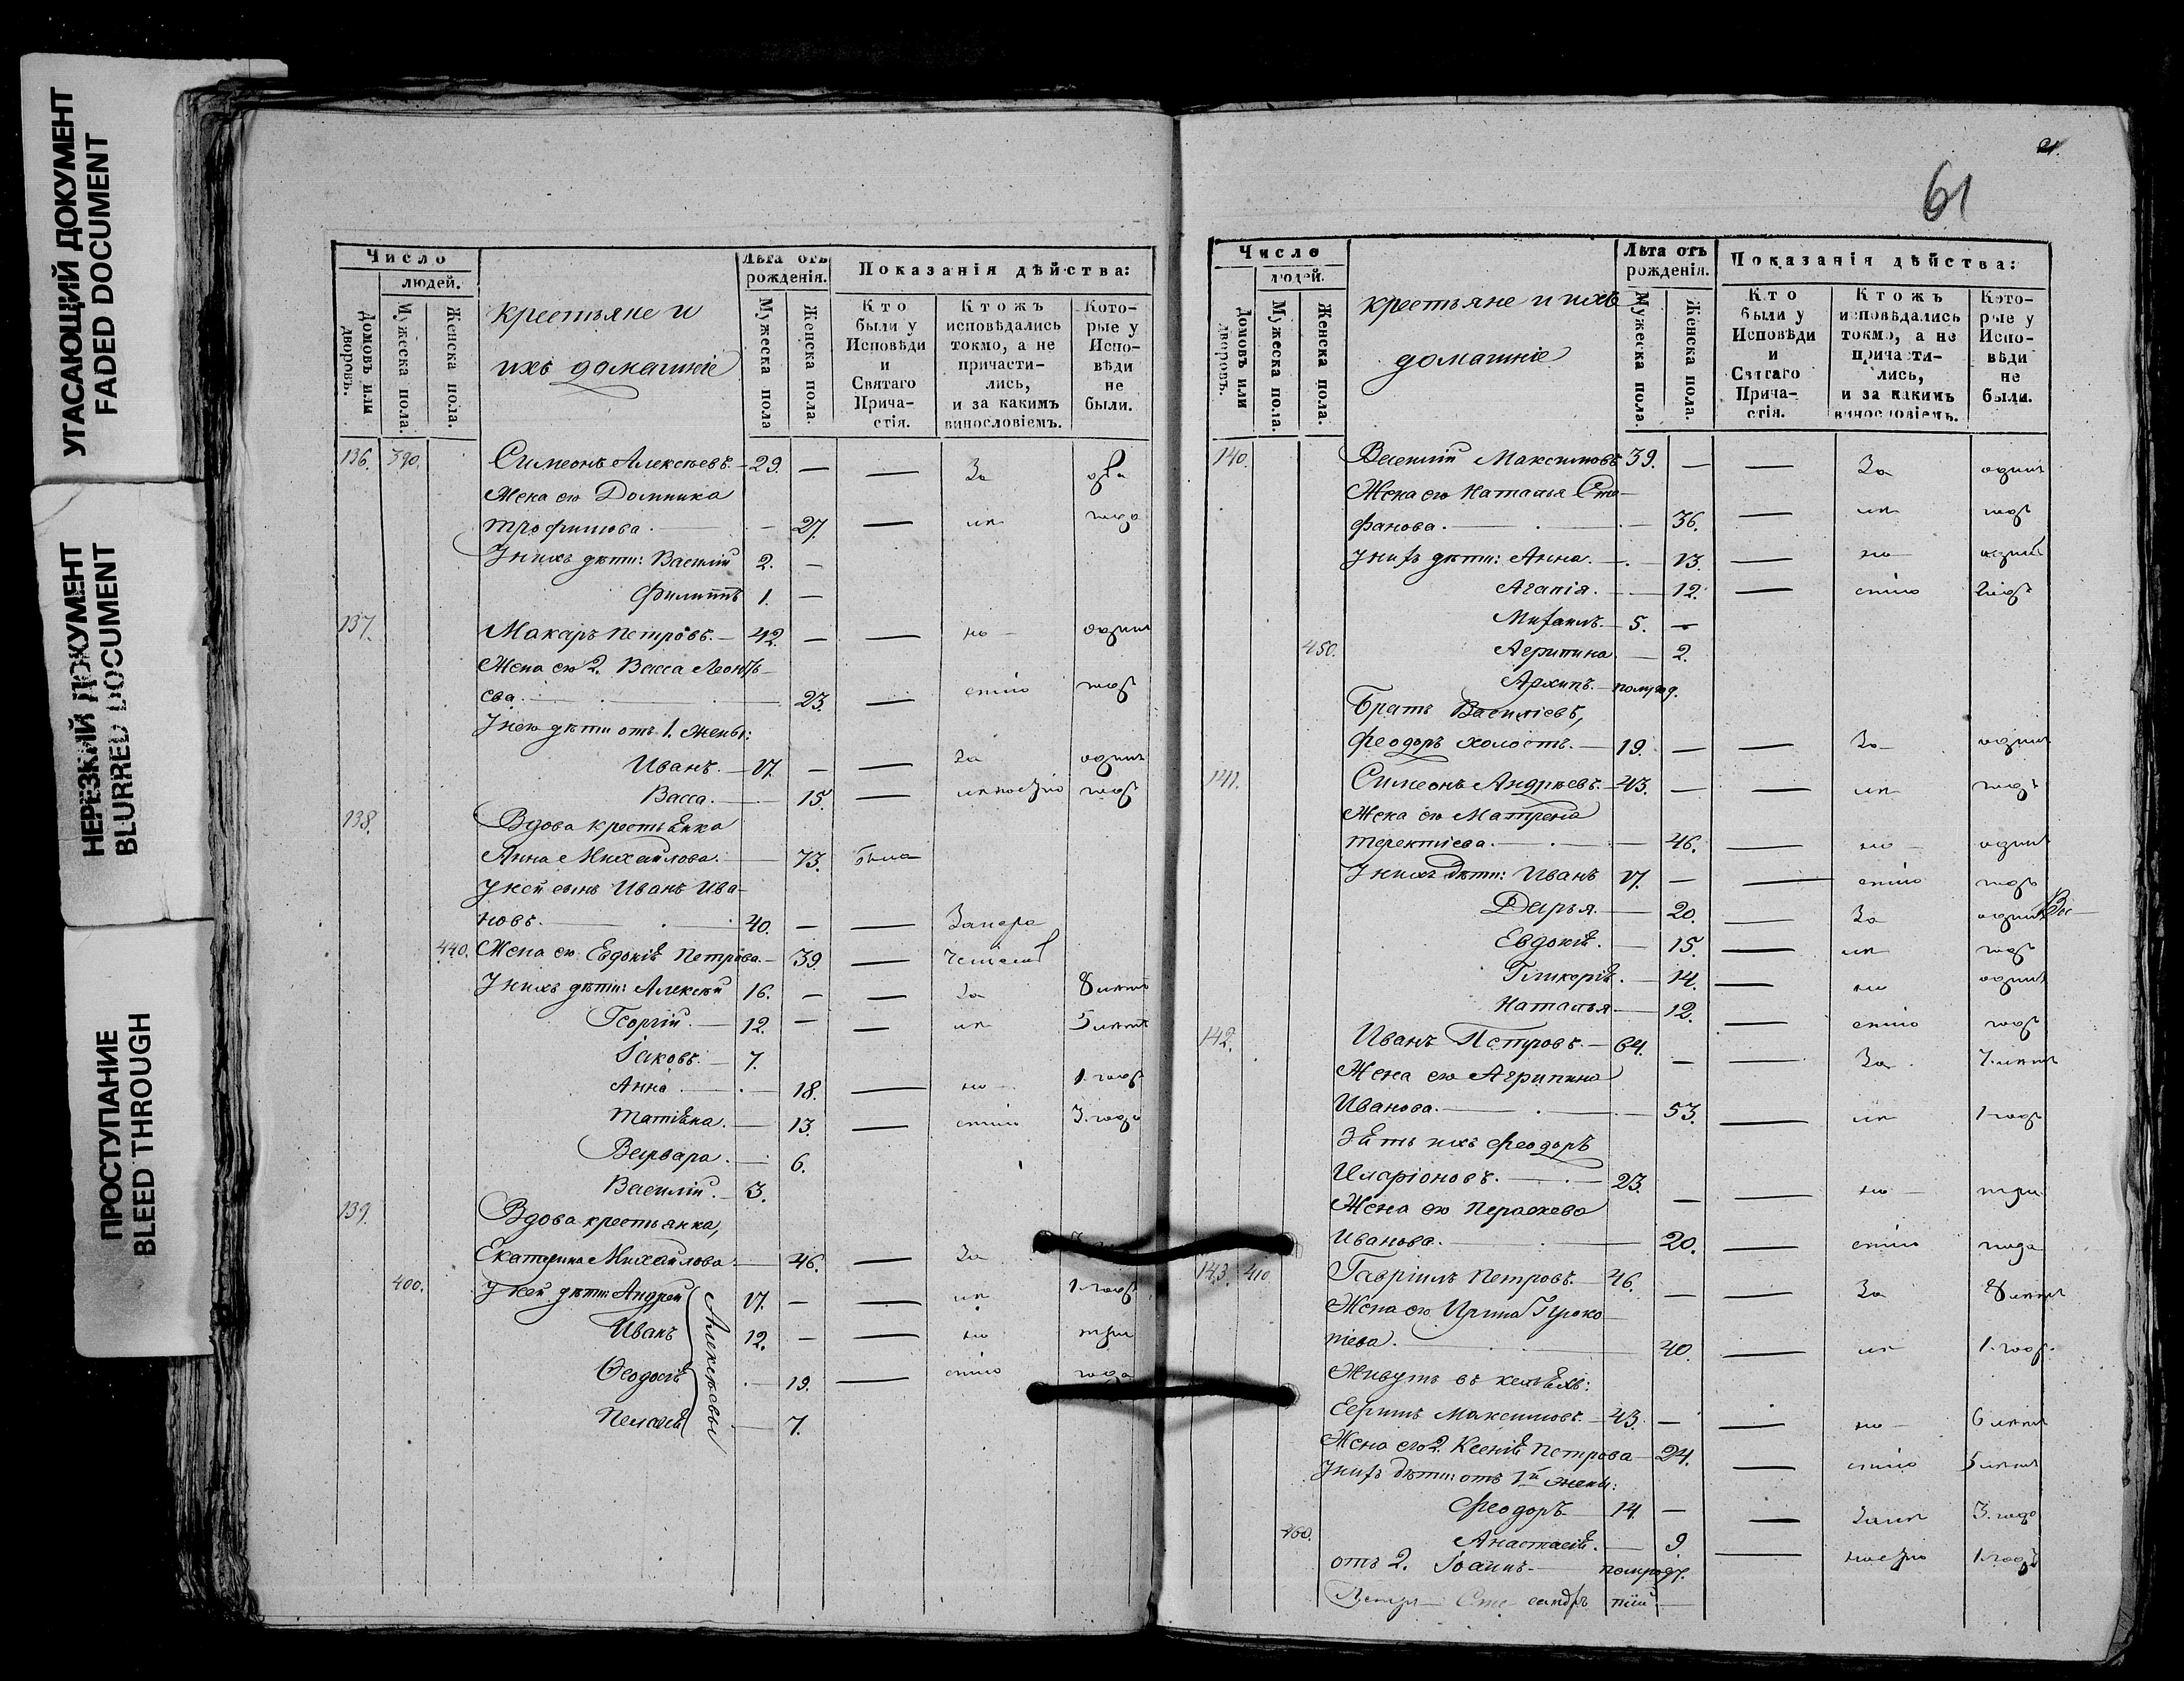 УГАСАЮЩИЙ ДОКУМЕНТ
FADED DOCUMENT
НЕРЕЗКИЙ ДОКУМЕНТ
BLURRED DOCUMENT
ПРОСТУПАНИЕ
BLEED THROUGH
Число
людей.
Домовъ или дворовъ.
Мужеска пола.
Женска пола.
крестьяне и
ихъ домашніе
Лѣта отъ рожденія.
Мужеска пола
Женска пола.
Показанія дѣйства:
Кто были у Исповѣди и Святаго Прича- стія.
Ктожъ исповѣдались токмо, а не причасти- лись, и за какимъ винословіемъ.
Кото- рые у Испо- вѣди не были.
136. 390. Симеонъ Алексѣевъ. 29. — — За два
Жена его Домника
Трофимова. — 27. — лѣ года
У нихъ дѣти: Василій 2. —
Филиппъ 1. —
137. Макаръ Петровъ. 42. — — но одинъ
Жена его 2. Васса Леонть-
ева. — 23. — стію годъ
У него дѣти отъ 1. жены:
Иванъ. 17. — — За одинъ
Васса. — 15. — годъ
138. Вдова крестьянка
Анна Михайлова. — 73. была
У ней сынъ Иванъ Ива-
новъ. 40. — —
440. Жена его Евдокія Петрова. — 39. —
У нихъ дѣти: Алексѣй 16. — — За 8 лѣтъ
Георгій. 12. — — лѣ 5 лѣтъ
Іаковъ. 7.
Анна. — 18. — но 1. годъ
Татіана. — 13. — стію 3. года
Варвара. — 6.
Василій. 3.
139. Вдова крестьянка,
Екатерина Михайлова. — 46. — За
400. У ней дѣти: Андрей 17. — — лѣ 1. годъ
Иванъ 12. — — но три
Феодосія — 19. — стію года
Пелагія — 7.
Алексѣевы
61
Число
людей.
Домовъ или дворовъ.
Мужеска пола.
Женска пола.
крестьяне и ихъ
домашніе
Лѣта отъ рожденія.
Мужеска пола.
Женска пола.
Показанія дѣйства:
Кто были у Исповѣди и Святаго Прича- стія.
Ктожъ исповѣдались токмо, а не причасти- лись, и за какимъ винословіемъ.
Кото- рые у Испо- вѣди не были.
140. Василій Максимовъ 39. — — За одинъ
Жена его Наталья Сте-
фанова. — 36. — лѣ годъ
У нихъ дѣти: Анна. — 13. — но одинъ
Агапія. — 12. — стію годъ
Михаилъ. 5. —
450. Агрипина. — 2.
Архипъ. полугод.
Братъ Василіевъ,
Феодоръ холостъ. 19. — — За одинъ
141. Симеонъ Андреевъ. 43. — — лѣ годъ
Жена его Матрена
Терентіева. — 46. — но одинъ
У нихъ дѣти: Иванъ 17. — — стію годъ
Дарья. — 20. — За одинъ
Евдокія. — 15. — лѣ годъ
Гликерія. — 14. — но одинъ
Наталья — 12. — стію годъ
142. Иванъ Петровъ. 64. — — За 7 лѣтъ
Жена его Агрипина
Иванова. — 53. — лѣ 1 годъ
Зять ихъ Феодоръ
Иларіоновъ. 23. — — но три
Жена его Параскева
Иванова. — 20. — стію года
143. 410. Гавріилъ Петровъ. 46. — — За 8 лѣтъ
Жена его Ирина Проко-
піева. — 40. — лѣ 1. годъ.
Живутъ въ кельяхъ:
Ефримъ Максимовъ. 43. — — но 6 лѣтъ
Жена его 2. Ксенія Петрова — 24. — стію 5 лѣтъ
У нихъ дѣти: отъ 1й жены:
Феодоръ 14. — — залѣ 3. года
460. Анастасія. — 9 — 1. годъ
отъ 2. Іоаннъ. полугод.